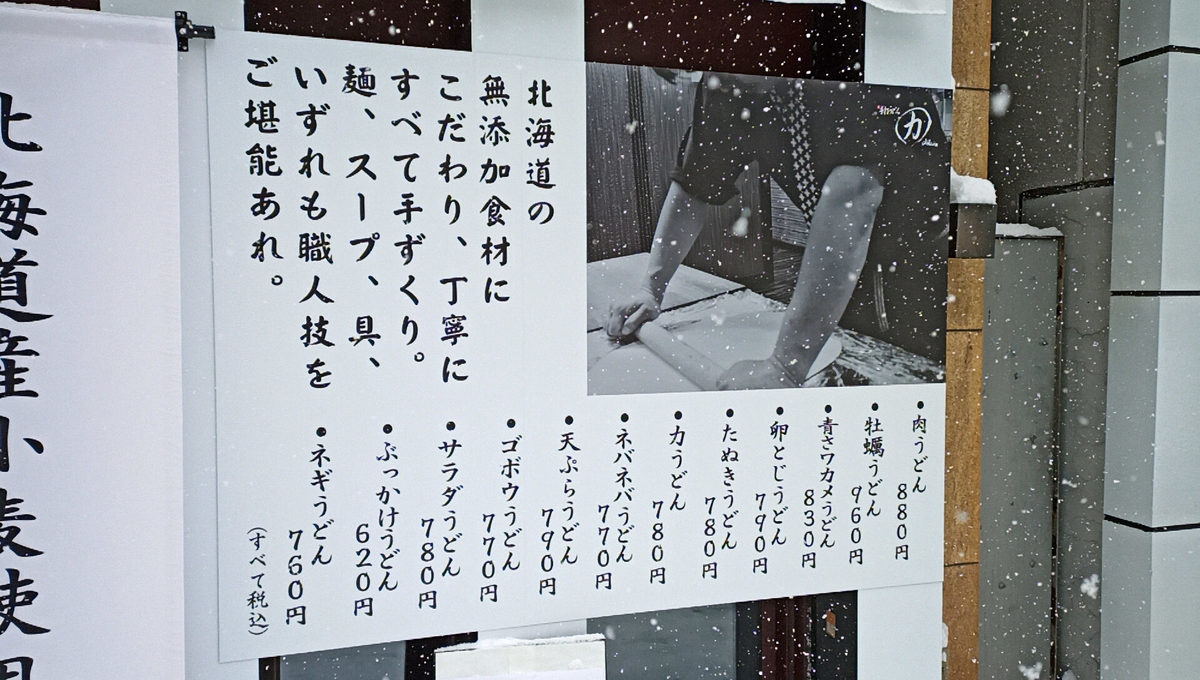 北海道の
無添加食材に
こだわり、丁寧に
すべて手ずくり。
麺、スープ、具、
いずれも職人技を
ご堪能あれ。
●肉うどん
880円
●牡蠣うどん
960円
●青さワカメうどん
830円
●卵とじうどん
790円
●たぬきうどん
780円
●力うどん
780円
●ネバネバうどん
770円
●天ぷらうどん
790円
●ゴボウうどん
770円
●サラダうどん
780円
●ぶっかけうどん
620円
●ネギうどん
760円
(すべて税込)
力
北海道産小麦使用